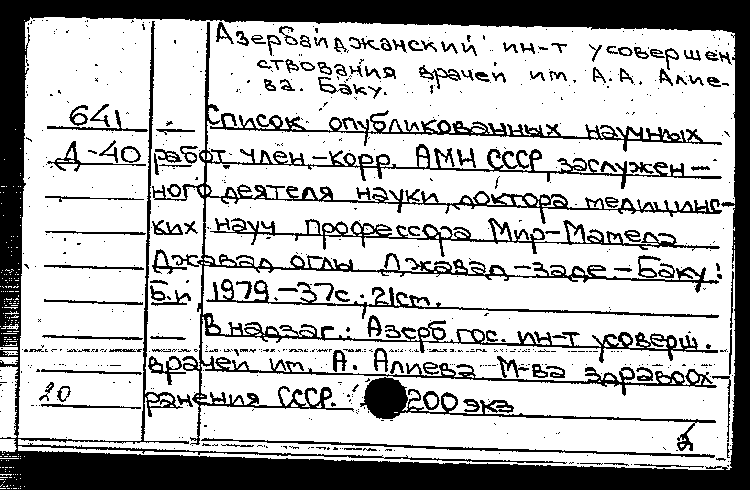 Азербайджанский ин-т усовершен-
ствования врачей им. А.А. Алие-
ва. Баку.
641 — Список опубликованных научных
Д-40 работ член.-корр. АМН СССР, заслужен-
ного деятеля науки, доктора медицинс-
ких науч, профессора Мир-Мамеда
Джавад оглы Джавад-заде - Баку:
Б.и, 1979.-37с.; 21см.
— В надзаг.: Азерб. гос. ин-т усоверш.
врачей им. А. Алиева М-ва здравоох-
20 ранения СССР. 200 экз.